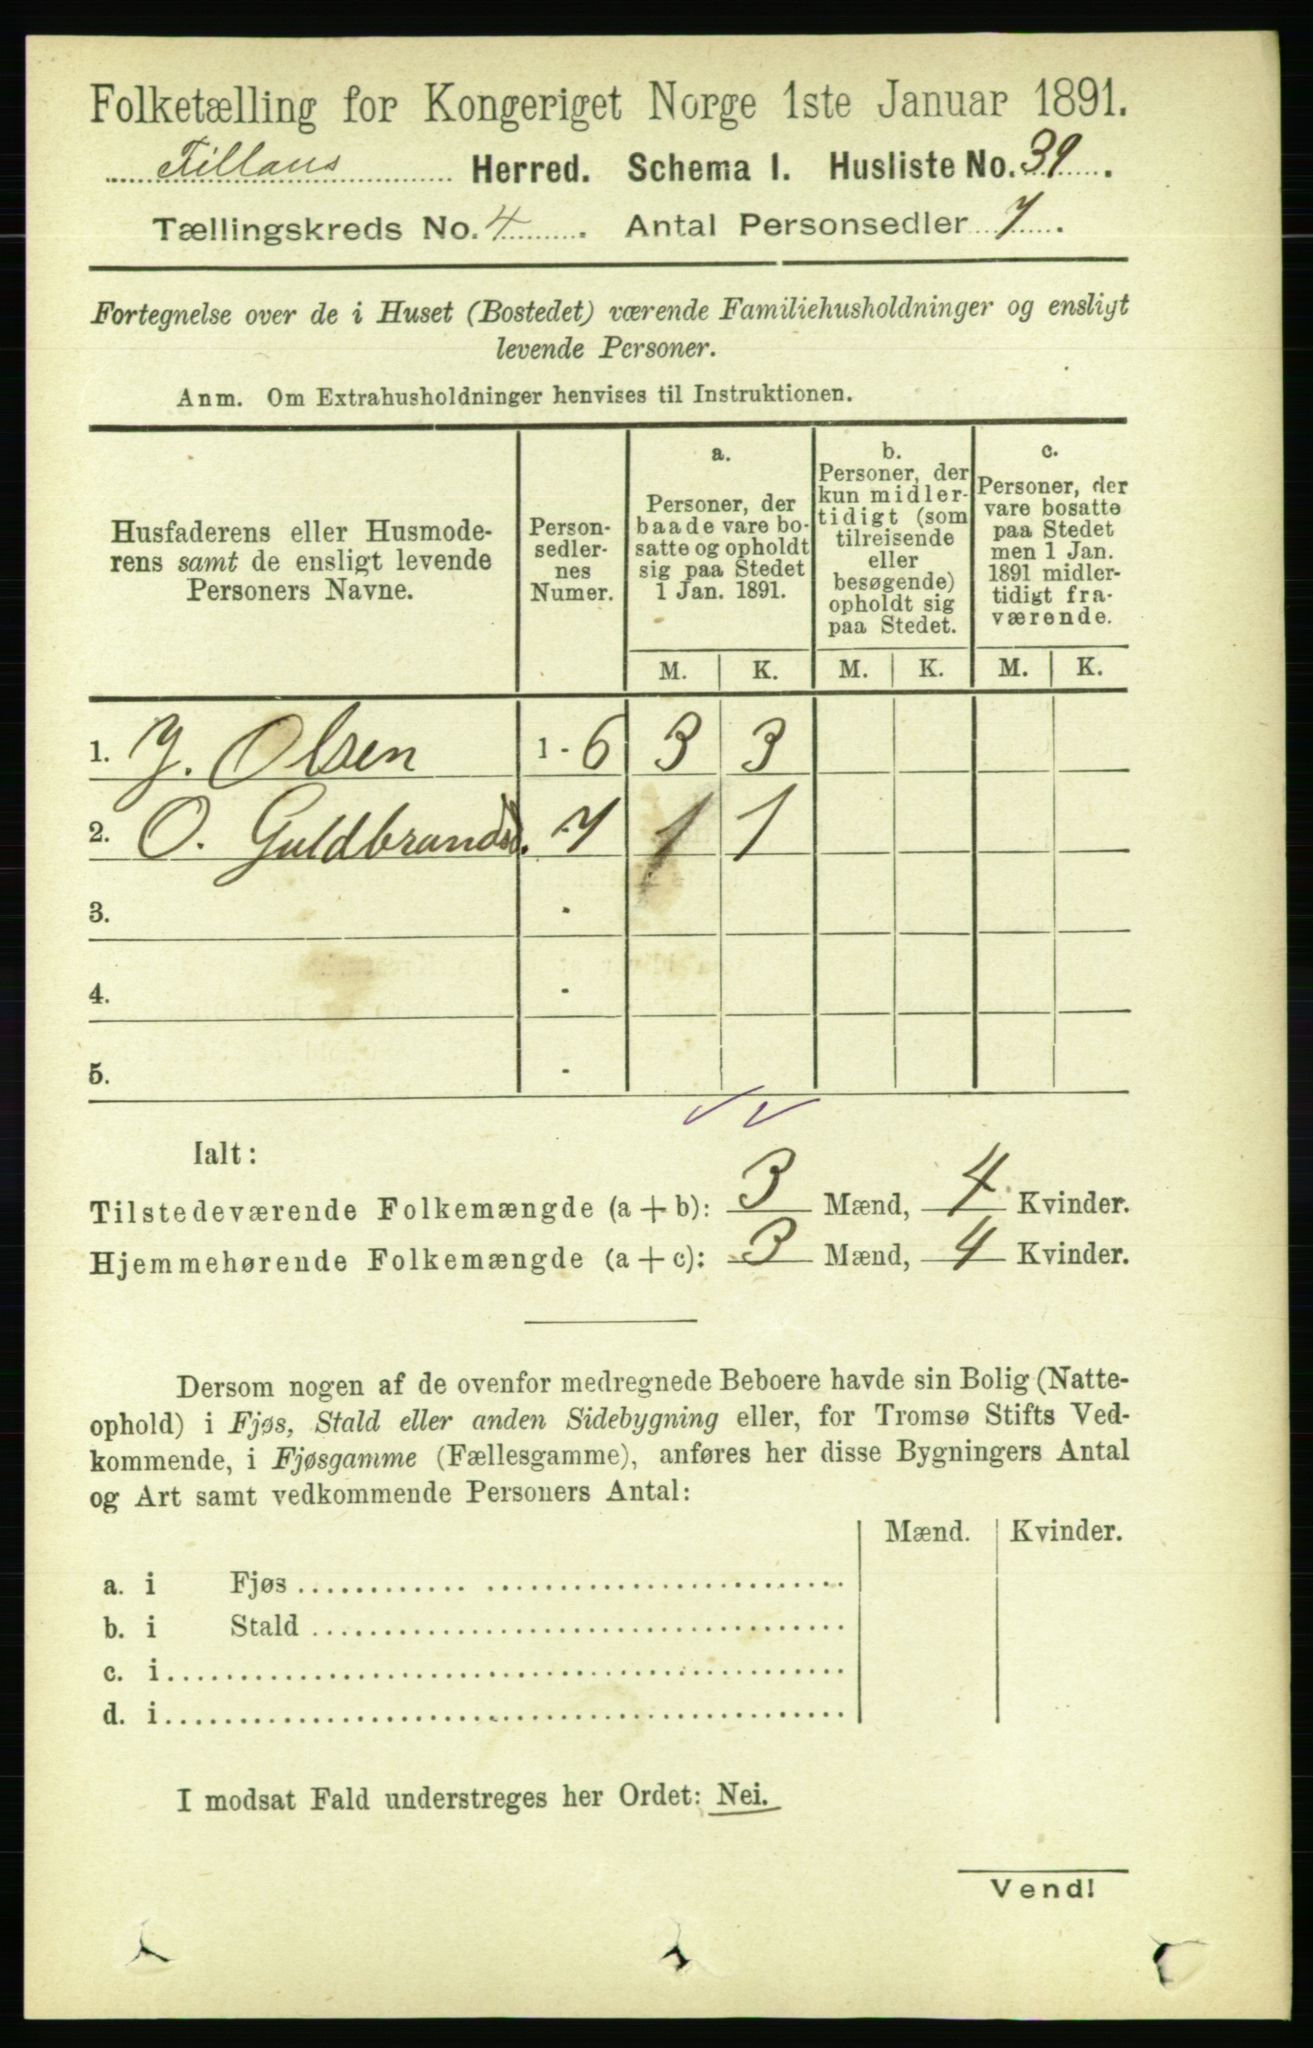 Folketælling for Kongeriget Norge 1ste Januar 1891.
Fillans Herred. Schema I. Husliste No. 39.
Tællingskreds No. 4. Antal Personsedler 7.
Fortegnelse over de i Huset (Bostedet) værende Familiehusholdninger og ensligt
levende Personer.
Anm. Om Extrahusholdninger henvises til Instruktionen.
Husfaderens eller Husmode-
rens samt de ensligt levende
Personers Navne.
Person-
sedler-
nes
Numer.
a.
Personer, der
baade vare bo-
satte og opholdt
sig paa Stedet
1 Jan. 1891.
b.
Personer, der
kun midler-
tidigt (som
tilreisende
eller
besøgende)
opholdt sig
paa Stedet.
c.
Personer, der
vare bosatte
paa Stedet
men 1 Jan.
1891 midler-
tidigt fra-
værende.
M. K. M. K. M. K.
1. J. Olsen 1 - 6 3 3
2. O. Guldbrandsd. - 7 1 1
3. -
4. -
5. -
Ialt:
Tilstedeværende Folkemængde (a + b): 3 Mænd, 4 Kvinder.
Hjemmehørende Folkemængde (a + c): 3 Mænd, 4 Kvinder.
Dersom nogen af de ovenfor medregnede Beboere havde sin Bolig (Natte-
ophold) i Fjøs, Stald eller anden Sidebygning eller, for Tromsø Stifts Ved-
kommende, i Fjøsgamme (Fællesgamme), anføres her disse Bygningers Antal
og Art samt vedkommende Personers Antal:
Mænd. Kvinder.
a. i Fjøs
b. i Stald
c. i
d. i
I modsat Fald understreges her Ordet: Nei.
Vend!